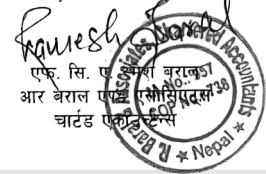 Ramesh
एफ. सि. ए. रमेश बराल
आर बेराल एण्ड एसोसिएट्स
चार्टड एकाउन्टेन्टस
R. Baral & Associates Chartered Accountants
Nepal